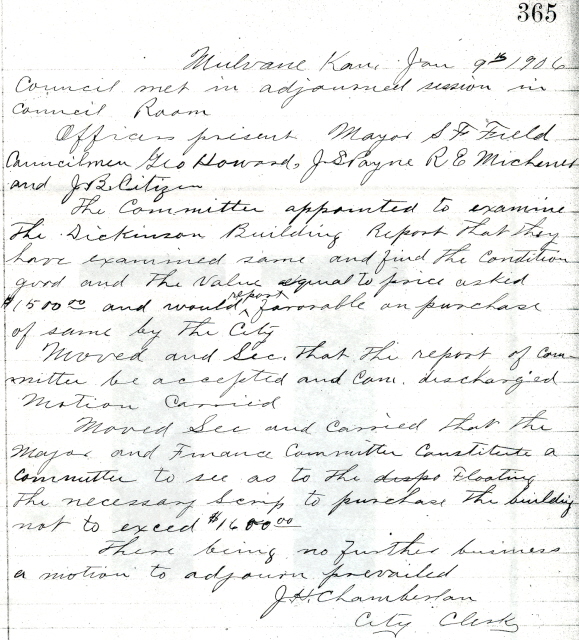 365
Mulvane Kan. Jan 9th 1906
Council met in adjourned session in
Council Room
Officers present Mayor S F Field
Councilmen Geo Howard, J S Payne R E Michener
and J B Citizen
The Committee appointed to examine
the Dickinson Building Report that they
have examined same and find the condition
good and the value equal to price asked
$1500.00 and would report favorable on purchase
of same by the City
Moved and Sec. that the report of Com-
mittee be accepted and Com. discharged
Motion Carried
Moved Sec and Carried that the
Mayor and Finance Committee Constitute a
Committee to see as to the dispo Floating
the necessary Scrip to purchase the building
not to exceed $1600.00
There being no further business
a motion to adjourn prevailed
J. H. Chamberlan
City Clerk